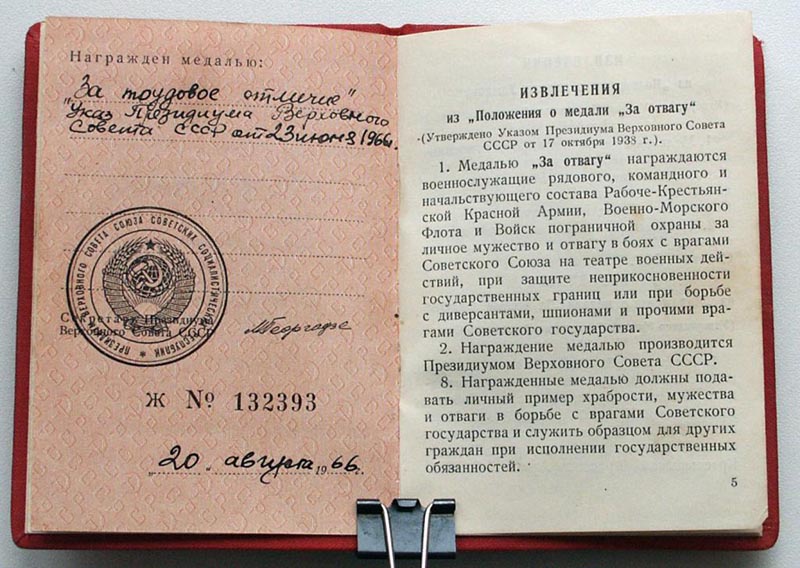 Награжден медалью:
„За трудовое отличие"
Указ Президиума Верховного
Совета СССР от 23 июня 1966г.
ПРЕЗИДИУМ ВЕРХОВНОГО СОВЕТА СОЮЗА СОВЕТСКИХ СОЦИАЛИСТИЧЕСКИХ РЕСПУБЛИК
Секретарь Президиума
Верховного Совета СССР
МГеоргадзе
Ж № 132393
„20" августа 1966.
ИЗВЛЕЧЕНИЯ
из „Положения о медали „За отвагу"
(Утверждено Указом Президиума Верховного Совета
СССР от 17 октября 1938 г.).
1. Медалью „За отвагу" награждаются
военнослужащие рядового, командного и
начальствующего состава Рабоче-Крестьян-
ской Красной Армии, Военно-Морского
Флота и Войск пограничной охраны за
личное мужество и отвагу в боях с врагами
Советского Союза на театре военных дей-
ствий, при защите неприкосновенности
государственных границ или при борьбе
с диверсантами, шпионами и прочими вра-
гами Советского государства.
2. Награждение медалью производится
Президиумом Верховного Совета СССР.
8. Награжденные медалью должны пода-
вать личный пример храбрости, мужества
и отваги в борьбе с врагами Советского
государства и служить образцом для других
граждан при исполнении государственных
обязанностей.
5